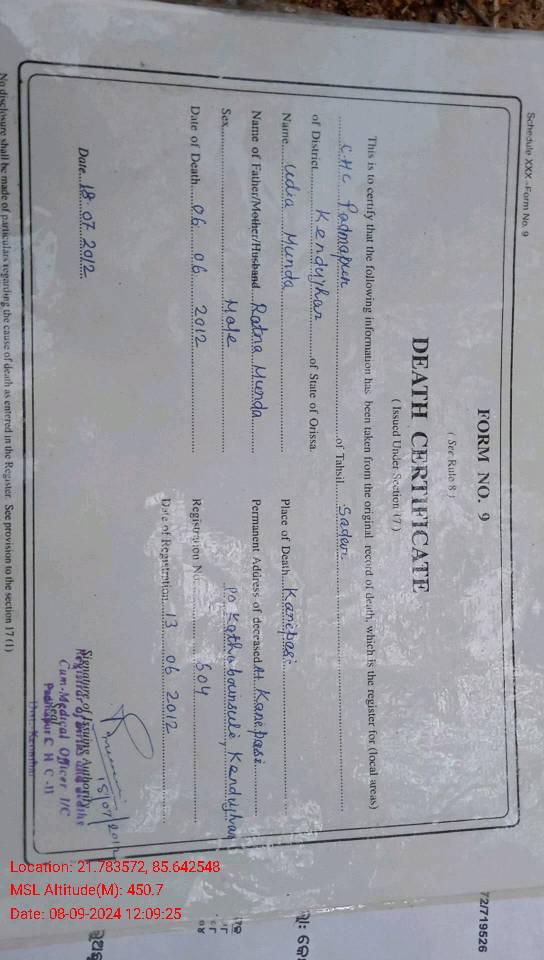 Schedule-XXX -Form No. 9
FORM NO. 9
( See Rule 8 )
DEATH CERTIFICATE
( Issued Under Section 17 )
This is to certify that the following information has been taken from the original record of death, which is the register for (local areas)
CHC Padmapur of Tahsil Sadar
of District Kendujhar of State of Orissa.
Name Udia Munda
Place of Death Kanepasi
Name of Father/Mother/Husband Ratna Munda
Permanent Address of decreased At. Kanepasi
PO Kathabainsuli, Kendujhar
Sex Male
Date of Death 06 06 2012
Registration No. 604
Date of Registration 13 06 2012
Date 18.07.2012
Signature of Issuing Authority
Registrar of Births and Deaths
Cum-Medical Officer I/C
Seal
Padmapur C H C -II
No disclosure shall be made of particulars regarding the cause of death as entered in the Register. See provision to the section 17 (1)
72/719526
Location: 21.783572, 85.642548
MSL Altitude(M): 450.7
Date: 08-09-2024 12:09:25